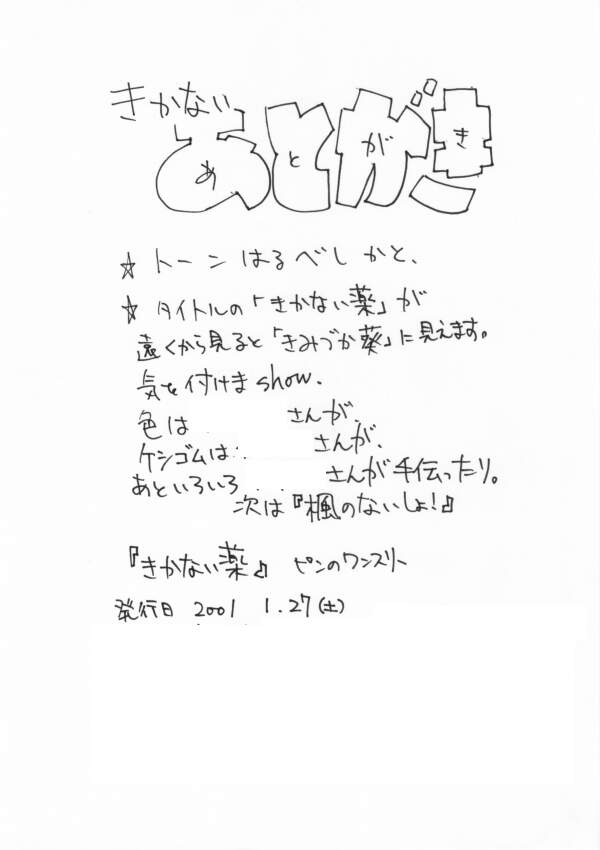 きかない
あとがき
あとがき
☆ トーンはるべしかと、
☆ タイトルの「きかない薬」が
遠くから見ると「きみづか葵」に見えます。
気を付けま show.
色は さんが、
ケシゴムは さんが、
あといろいろ さんが手伝ったり。
次は『楓のないしょ!』
『きかない薬』 ピンのワンスリー
発行日 2001 1.27(土)